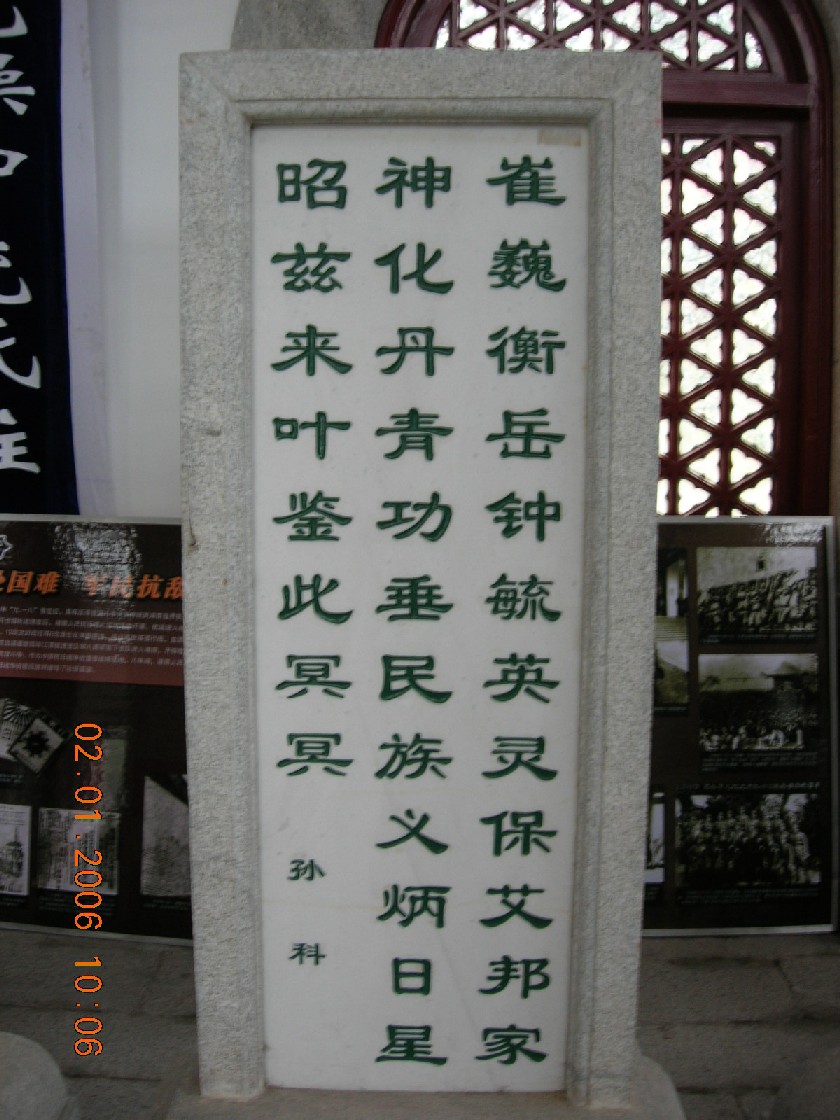 崔巍衡岳钟毓英灵保艾邦家
神化丹青功垂民族义炳日星
昭兹来叶鉴此冥冥
孙科
国难 军民抗敌
02.01.2006 10:06